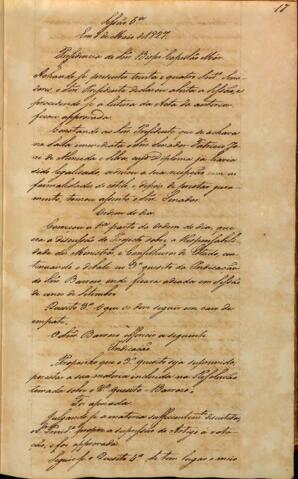 17
Sessão 5ª
Em 8 de Maio de 1827.
Presidencia do Sñr Bispo Capellão Mór
Achando-se presentes trinta e quatro Snrs. Sena-
dores, o Sñr Presidente declarou aberta a Sessão, e
procedendo-se á leitura da Acta da anterior
ficou approvada.
Constando ao Sñr Presidente, que se achava
na Salla immediata o Sñr Senador Patricio Jo-
sé de Almeida e Silva, cujo Diploma já havia
sido legalisado, ordenou a sua recepção com as
formalidades do estilo, e depois de prestar jura-
mento, tomou assento o Sñr Senador.
Ordem do dia
Começou a 1ª parte da Ordem do dia, que
era a discussão do Projecto sobre a Responsabili-
dade dos Ministros, e Conselheiros de Estado, con-
tinuando o debate no 3º quesito da Indicação
do Sñr Barroso, onde ficara adiada em Sessão
de de Setembro
Quesito 3º O que se deve seguir em caso de
empate.
O Sñr Barroso offereceo a seguinte
Indicação
Proponho que o 3º quesito seja supprimido,
por estar a sua materia incluida na Resolução
tomada sobre o quesito = Barroso.
Foi apoiada.
Julgando-se a materia sufficientemte discutida,
o Sñr Presidte propoz a suppressão do Artigo á vota-
ção, e foi approvada.
Seguio-se o Quesito 4º Se tem lugar o meio